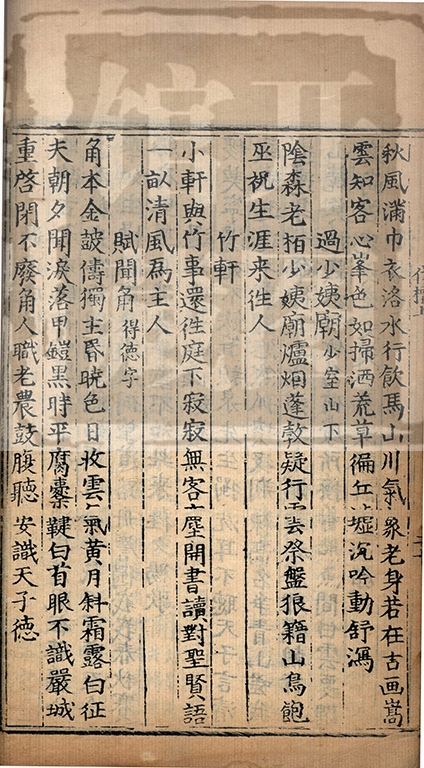 秋風滿巾衣洛水行飲馬山川氣象老身若在古画嵩
雲知客心峯色如掃洒荒草徧丘墟沉吟動舒瀉
過少姨廟少室山下
陰森老栢少姨廟爐烟蓬勃疑行雲祭盤狼籍山鳥飽
巫祝生涯来徃人
竹軒
小軒與竹事還徃庭下寂寂無客塵開書讀對聖賢語
一畝清風爲主人
賦聞角得德字
角本金皷儔獨主昏曉色日收雲氣黃月斜霜露白征
夫朝夕聞淚落甲鎧黑時平腐櫜鞬白首眼不識嚴城
重啓閉不廢角人職老農鼓腹聽安識天子德